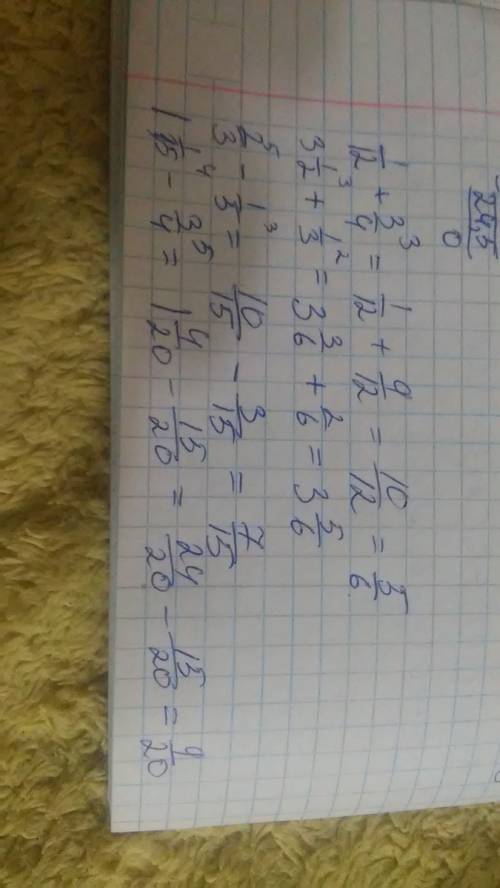 24,5
0
1/12 + 3/4 ³ = 1/12 + 9/12 = 10/12 = 5/6
3 1/2 ³ + 1/3 ² = 3 3/6 + 2/6 = 3 5/6
2/3 ⁵ - 1/5 ³ = 10/15 - 3/15 = 7/15
1 1/5 ⁴ - 3/4 ⁵ = 1 4/20 - 15/20 = 24/20 - 15/20 = 9/20